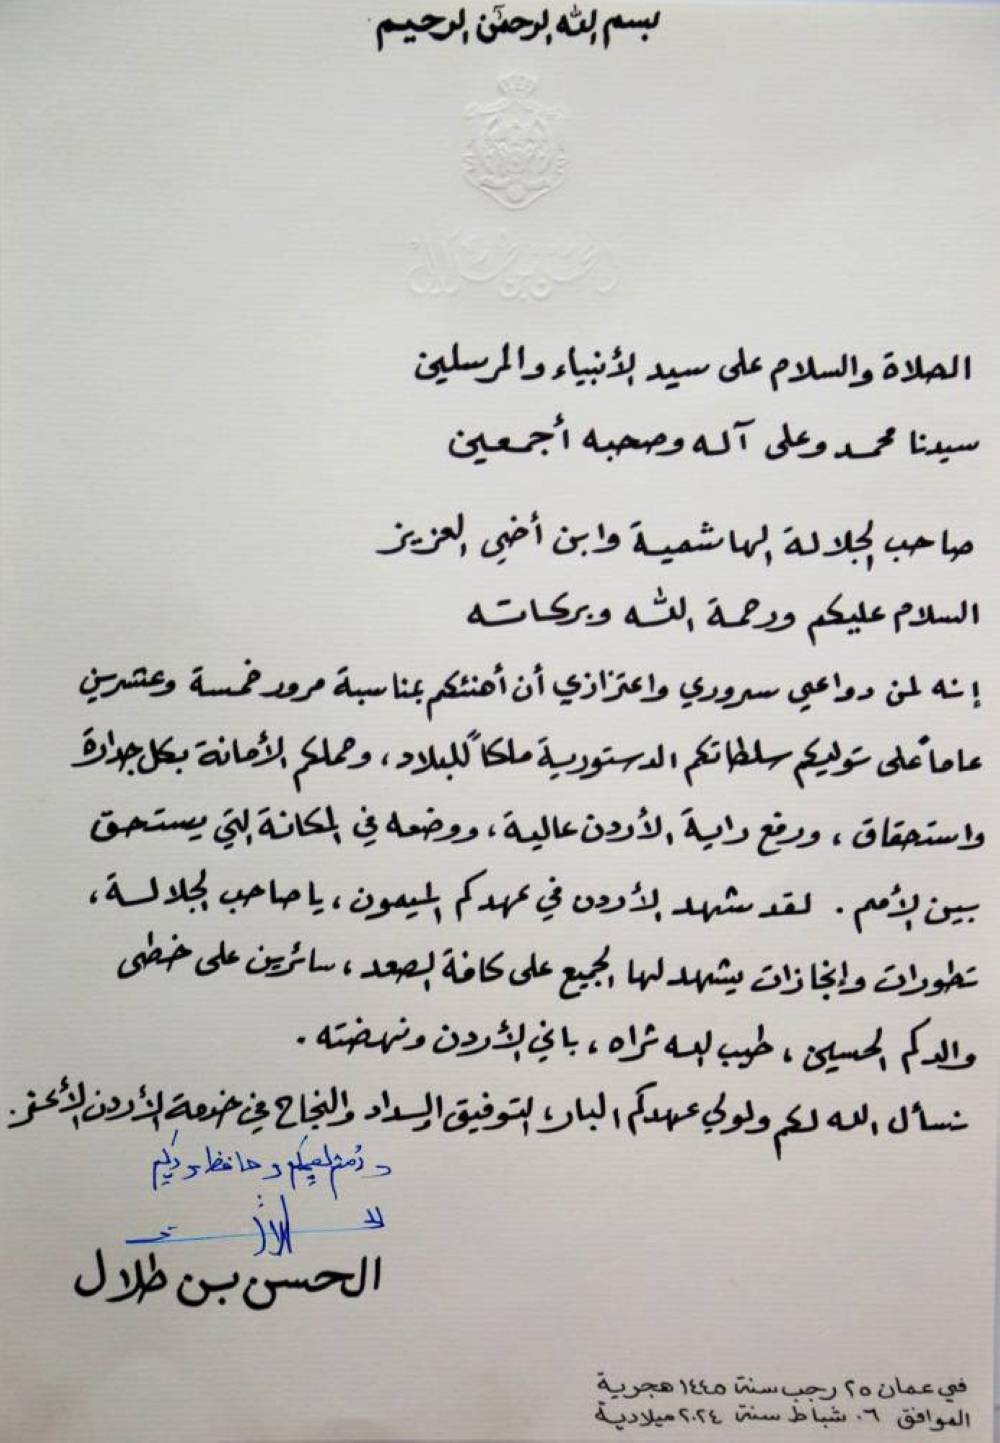 بسم الله الرحمن الرحيم
الحسن بن طلال
الصلاة والسلام على سيد الأنبياء والمرسلين
سيدنا محمد وعلى آله وصحبه أجمعين
صاحب الجلالة الهاشمية وابن أخي العزيز
السلام عليكم ورحمة الله وبركاته
إنه لمن دواعي سروري واعتزازي أن أهنئكم بمناسبة مرور خمسة وعشرين
عاماً على توليكم سلطاتكم الدستورية ملكاً للبلاد، وحملكم الأمانة بكل جدارة
واستحقاق، ورفع راية الأردن عالية، ووضعه في المكانة التي يستحق
بين الأمم. لقد شهد الأردن في عهدكم الميمون، يا صاحب الجلالة،
تطورات وإنجازات يشهد لها الجميع على كافة الصعد، سائرين على خطى
والدكم الحسين، طيب الله ثراه، باني الأردن ونهضته.
نسأل الله لكم ولولي عهدكم البار، التوفيق والسداد والنجاح في خدمة الأردن الأعز.
ودمتم
الحسن بن طلال
في عمان ٢٥ رجب سنة ١٤٤٥ هجرية
الموافق ٠٦ شباط سنة ٢٠٢٤ ميلادية